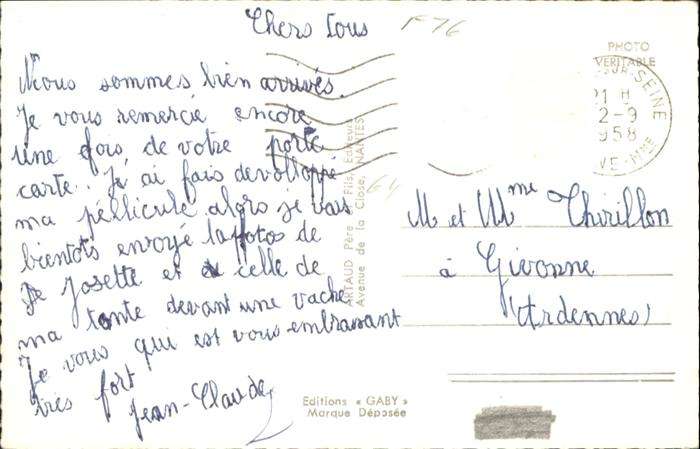 Chers tous
F 76
Nous sommes bien arrivés.
Je vous remercie encore
une fois de votre porte
carte. J'é ai fais devolloppé
ma pellicule alors je vais
bientots envoyé la fotos de
de Josette et celle de
ma tante devant une vache.
Je vous qui est vous embrassant
très fort
Jean-Claude
PHOTO
VERITABLE
SUR-SEINE
21 H
2-9
1958
VE-MNE
ARTAUD Père & Fils, Editeurs
Avenue de la Close, NANTES
64
M et Mme Thirillon
à Givonne
(Ardennes)
Editions « GABY »
Marque Déposée